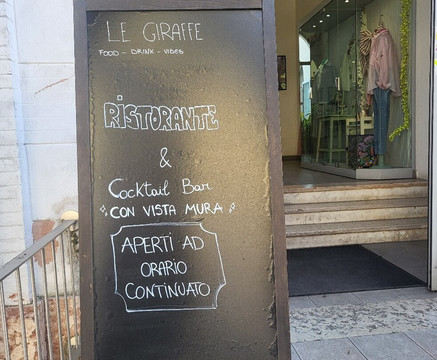 LE GIRAFFE
FOOD - DRINK - VIBES
RISTORANTE
&
Cocktail Bar
CON VISTA MURA
APERTI AD
ORARIO
CONTINUATO